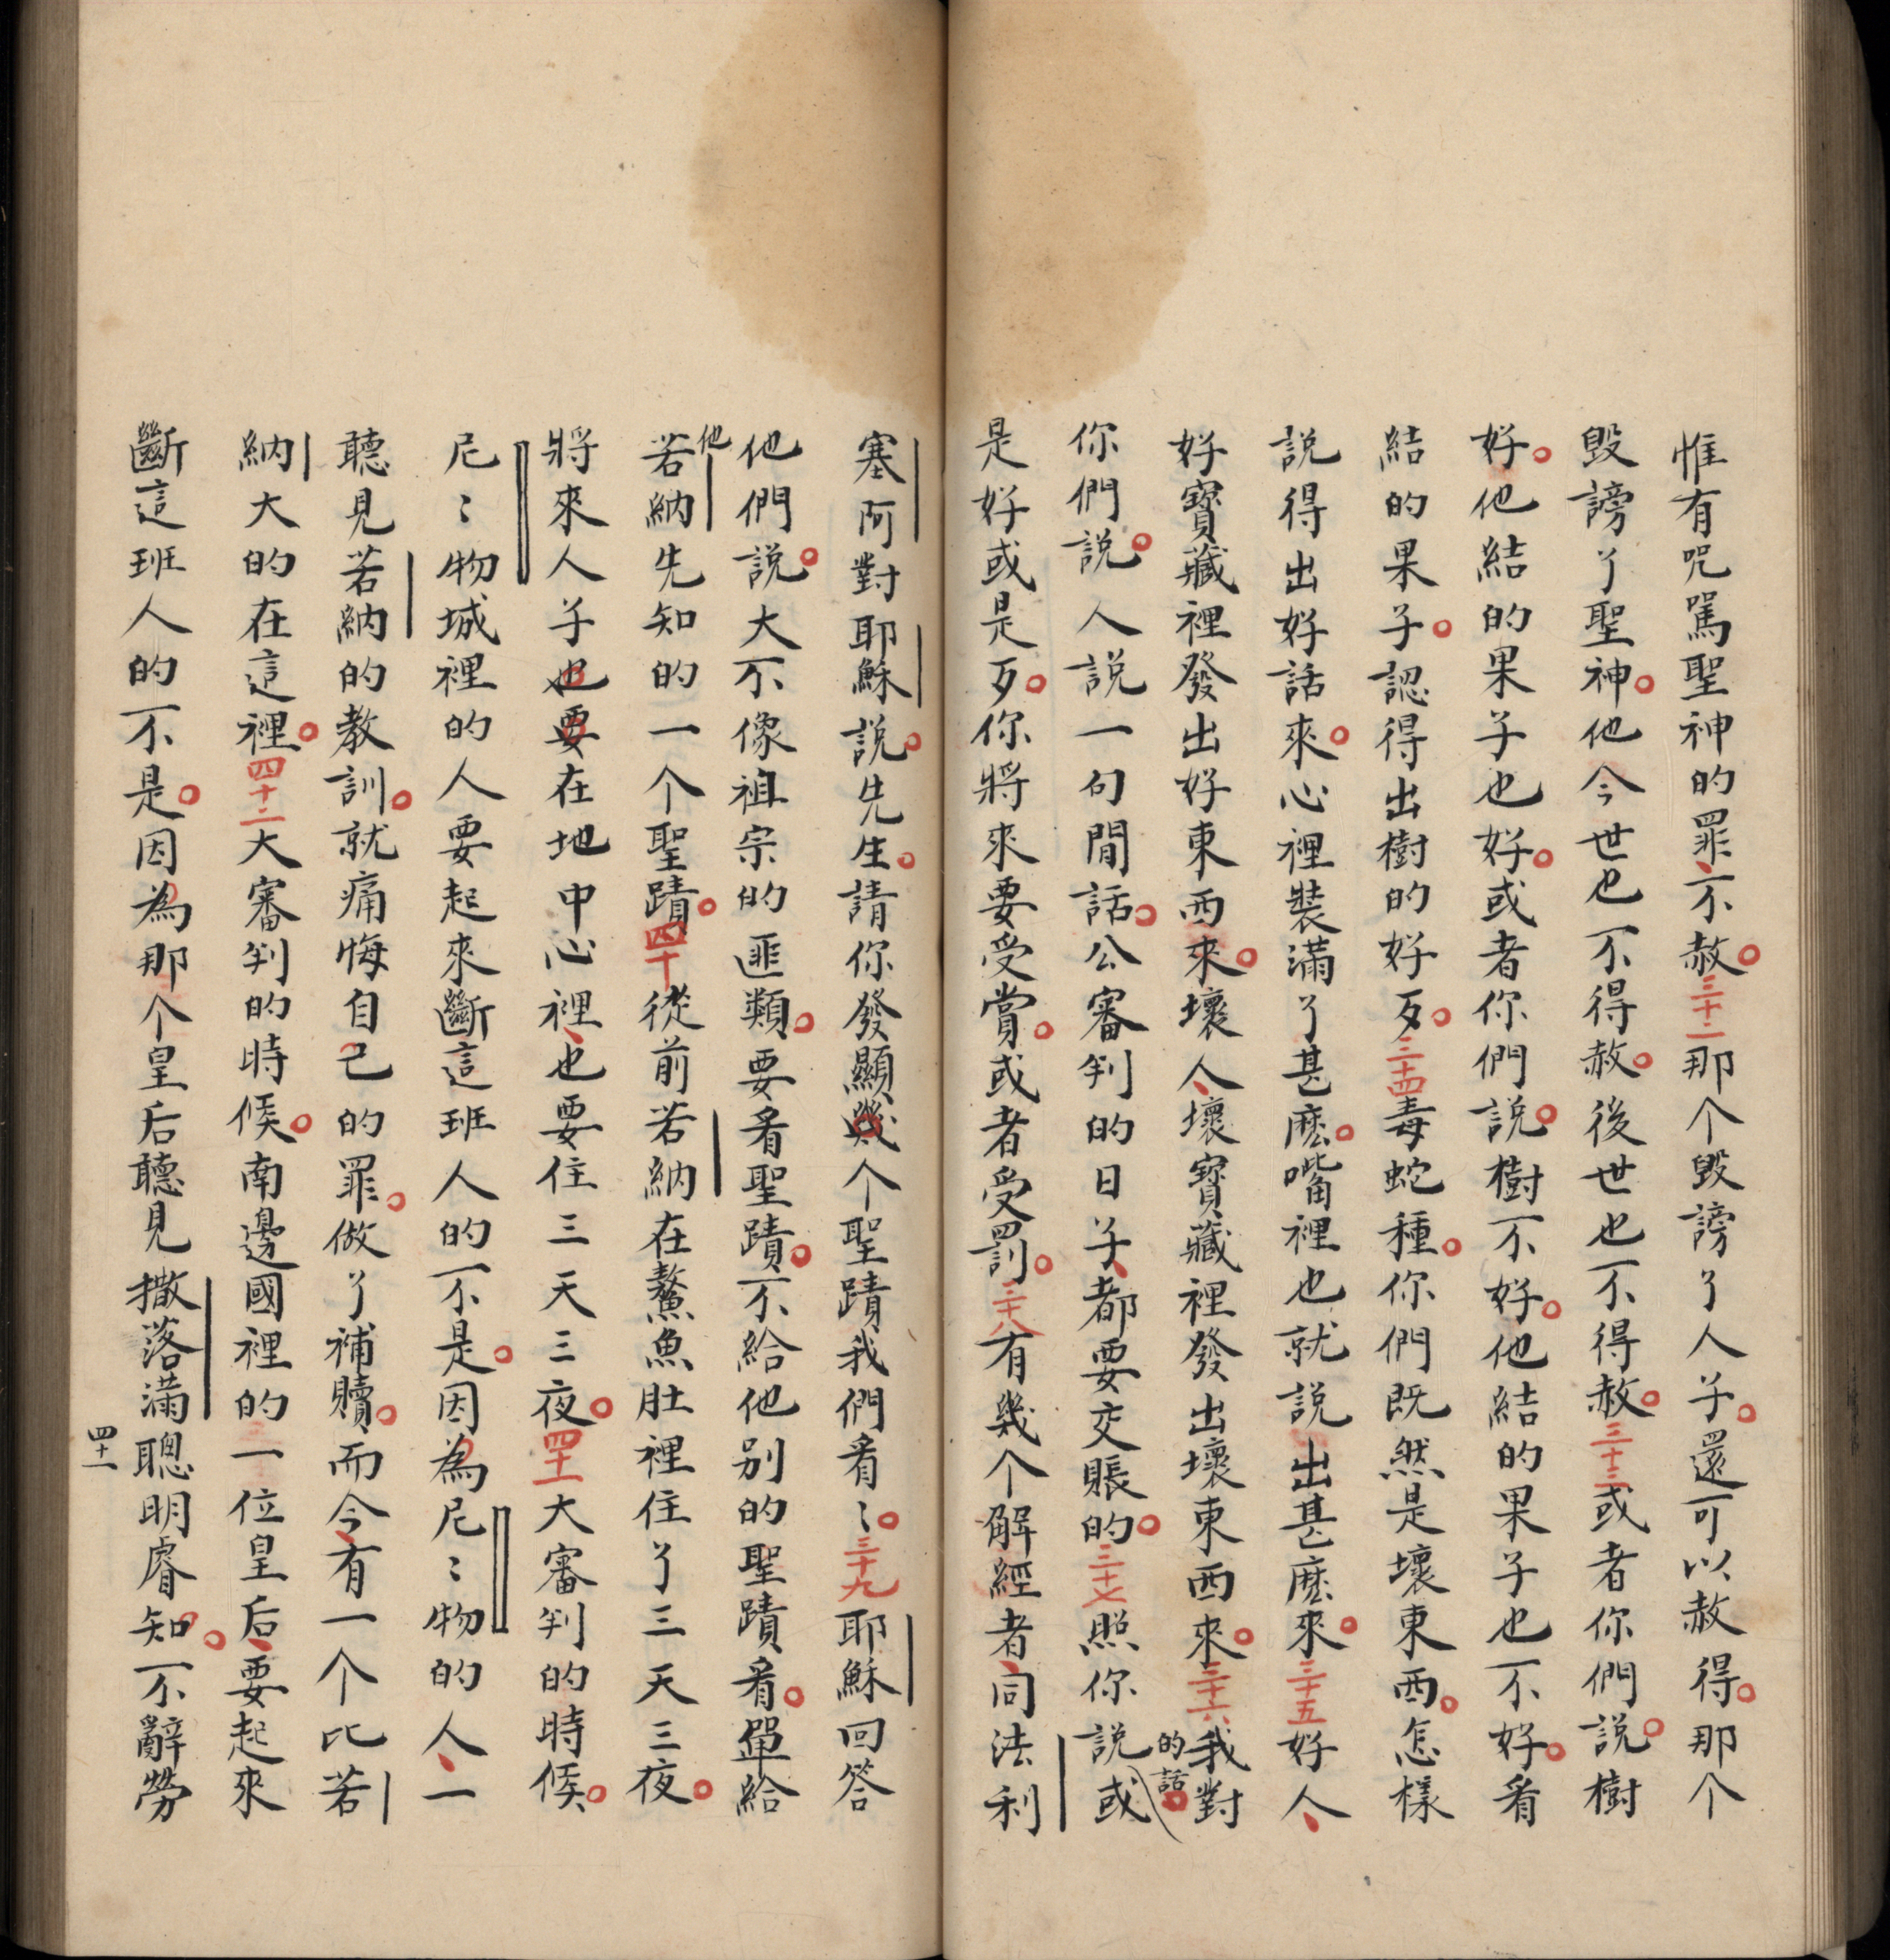 惟有呪駡聖神的罪、不赦。三十二那个毀謗了人子。還可以赦得。那个
毀謗了聖神。他今世也不得赦。後世也不得赦。三十三或者你們說。樹
好。他結的果子也好。或者你們說。樹不好。他結的果子也不好。看
結的果子。認得出樹的好歹。三十四毒蛇種。你們既然是壞東西。怎樣
說得出好話來。心裡裝滿了甚麽。嘴裡也就說出甚麽來。三十五好人、
好寶藏裡發出好東西來。壞人、壞寶藏裡發出壞東西來。三十六我對
你們說。人說一句閒話。公審判的日子、都要交賬的。三十七照你說的話。或
是好或是歹。你將來要受賞。或者受罰。三十八有幾个解經者、同法利
塞阿對耶穌說。先生。請你發顯幾个聖蹟我們看〻。三十九耶穌回答
他們說。大不像祖宗的匪類。要看聖蹟。不給他别的聖蹟看。單給
他若納先知的一个聖蹟。四十從前若納在鰲魚肚裡住了三天三夜。
將來人子也要在地中心裡、也要住三天三夜。四十一大審判的時候、
尼〻物城裡的人要起來斷這班人的不是。因為尼〻物的人、一
聽見若納的教訓。就痛悔自己的罪。做了補贖。而今、有一个比若
納大的在這裡。四十二大審判的時候。南邊國裡的一位皇后、要起來
斷這班人的不是。因為那个皇后聽見撒落滿聰明睿知。不辭勞
四十一